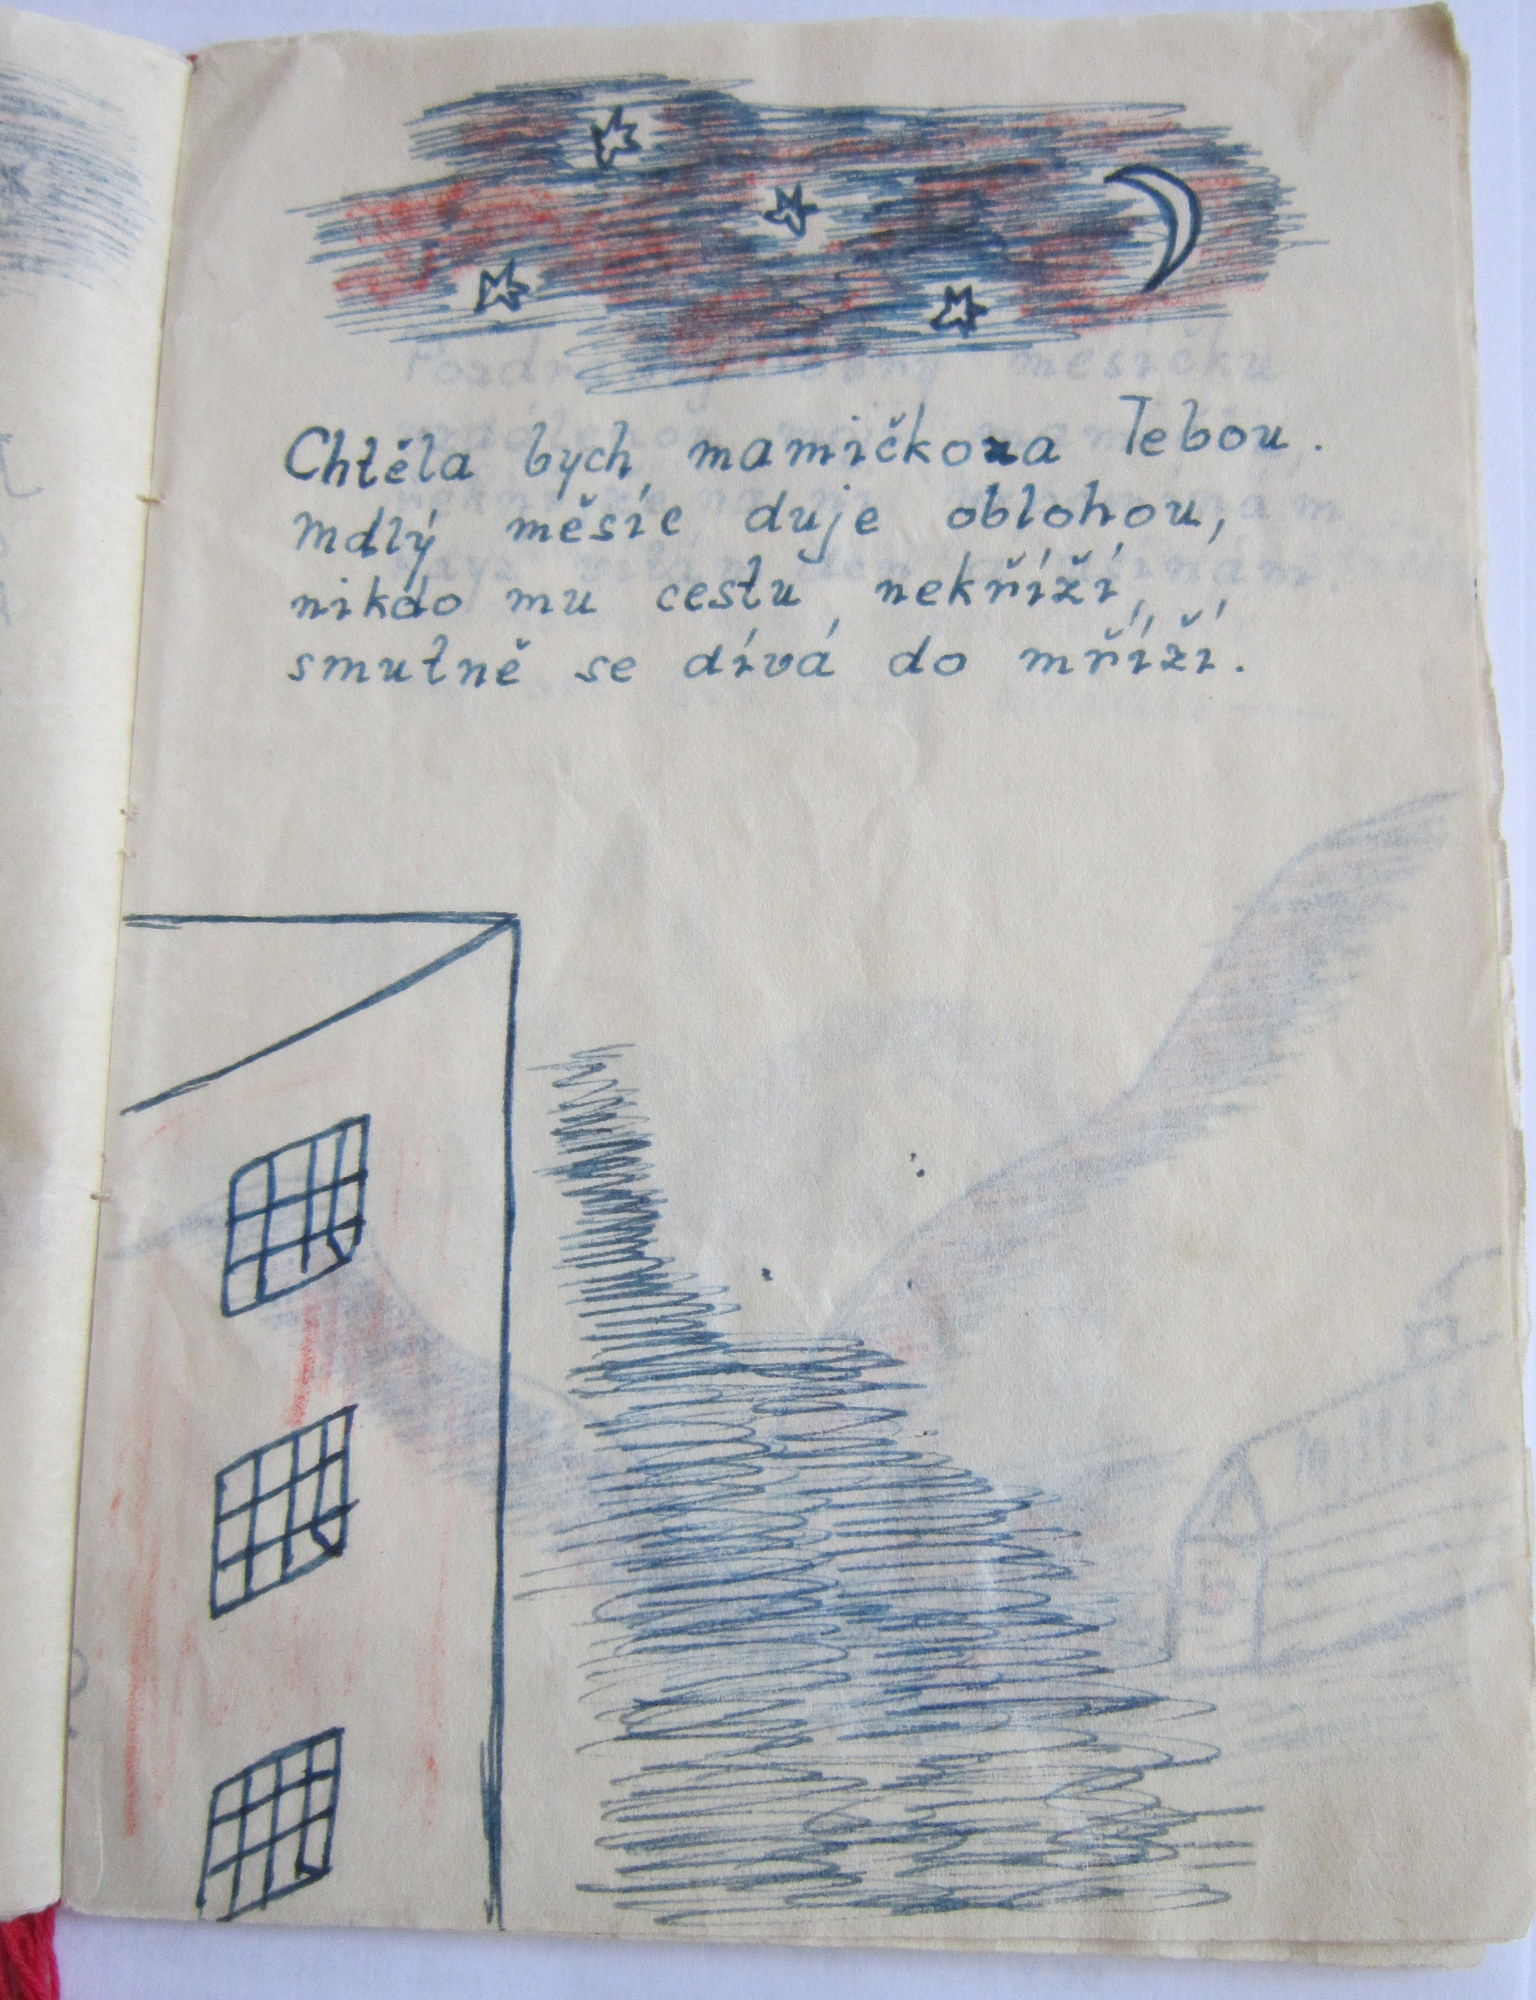 Chtěla bych, mamičko za Tebou.
Mdlý měsíc duje oblohou,
nikdo mu cestu nekříží,
smutně se dívá do mříží.